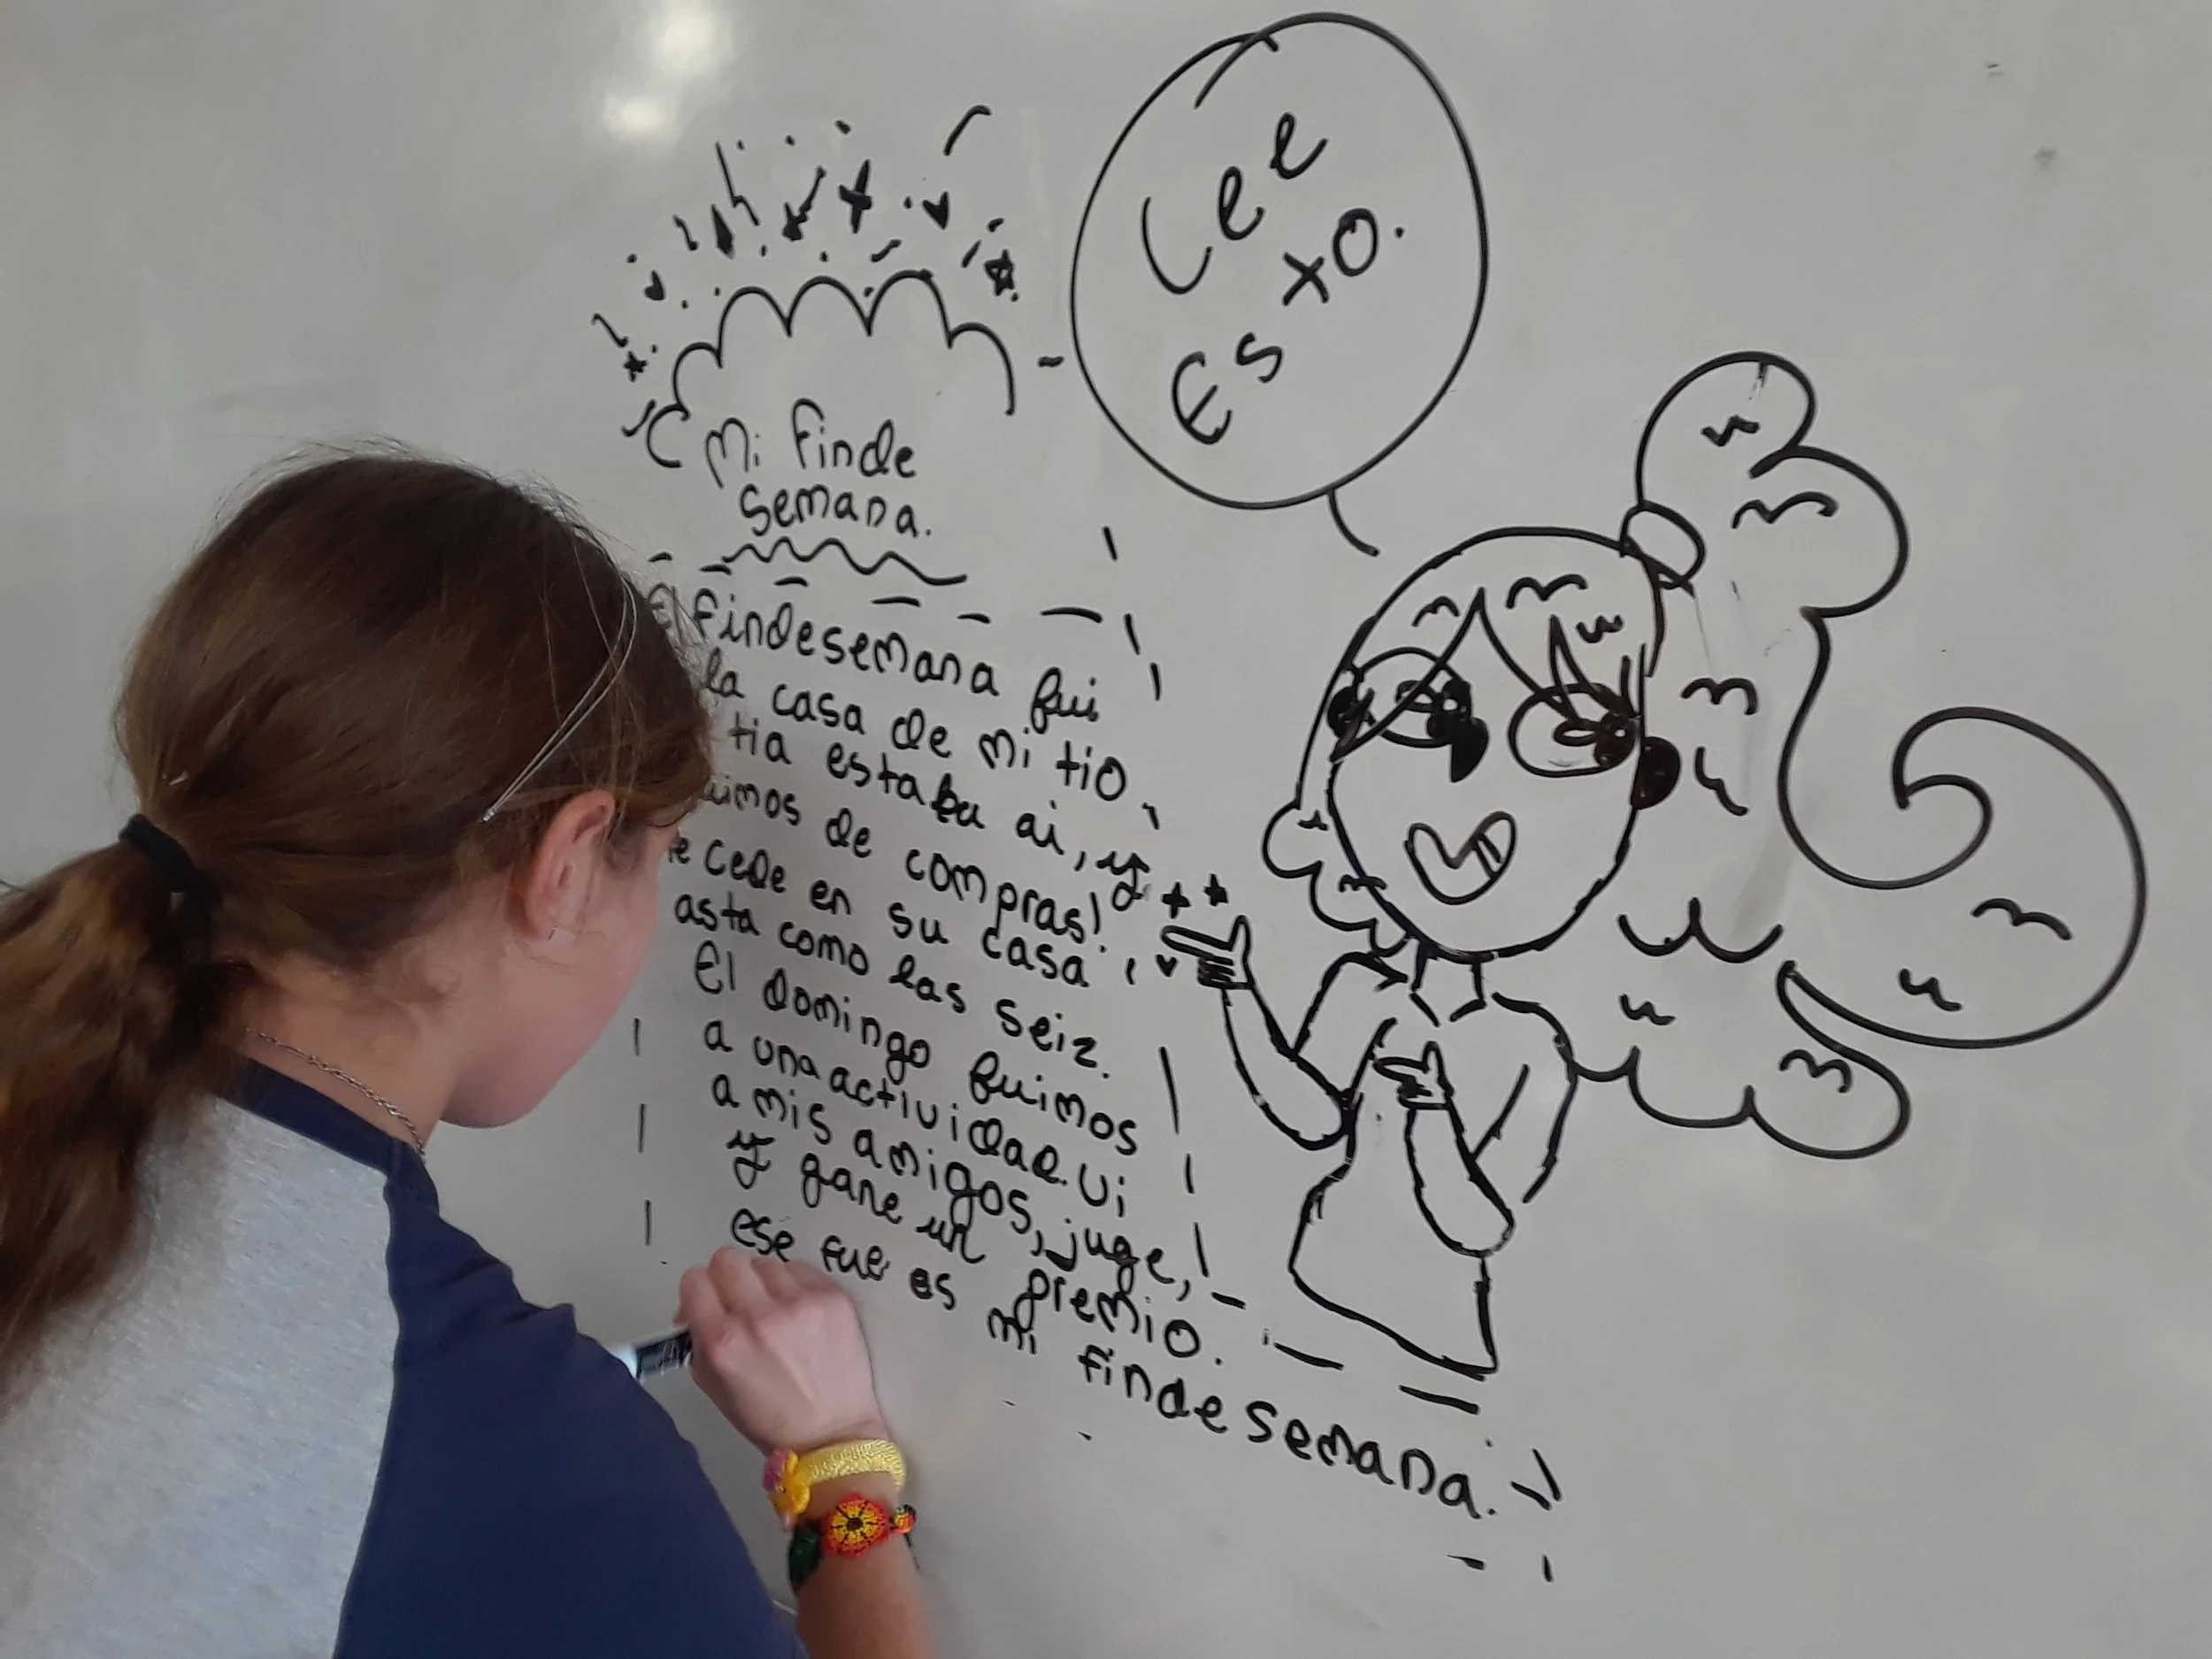 Lee
Esto.
Mi finde
semana.
El findesemana fui
la casa de mi tio,
tia estaba ai, y
uimos de compras!
e cede en su casa
asta como las seiz.
El domingo fuimos
a una actividad. Vi
a mis amigos, juge,
y gane un premio.
ese fue es mi finde semana.